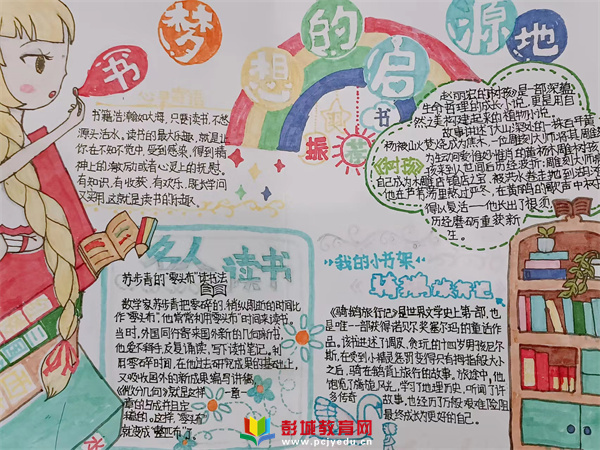 书 梦想的启源地
书籍浩瀚如大海,只要读书,不愁
源头活水,读书的最大乐趣,就是让
你在不知不觉中,受到感染,得到精
神上的激励或者心灵上的抚慰。
有知识,有收获,有欢乐,既长学问
又实用,这就是读书的乐趣。
书
振
赵丽宏的《树孩》是一部深蕴
生命哲理的成长小说,更是用自
然之美构建起来的植物小说。
故事讲述了大山深处的一株百年黄
《树孩》
名人读书
苏步青的“零头布”读书法
数学家苏步青把零碎的、稍纵即逝的时间比
作“零头布”。他常常利用零头布时间来读书。
当时,外国同行寄来国外新的几何新书,
他爱不释手,反复诵读,写下读书笔记,利
用零碎时间,在他过去研究成果的基础上,
又吸收国外的新成果编写讲稿,
《微分几何》就是这样一章一
章的写成书且定
稿的。这样,“零头布”
就变成“整匹布”了。
我的小书架
骑鹅旅行记
《骑鹅旅行记》是世界文学史上第一部,也
是唯一部获得诺贝尔奖塞尔玛的童话作
品,该讲述了调皮、贪玩的十四岁男孩尼尔
斯,在受到小精灵惩罚变得只有拇指般大小
之后,骑在鹅背上旅行的故事,旅途中,他
饱览了旖旎风光,学习了地理历史,听闻了许
多传奇故事,也经历了历般艰难险阻
最终成长为更好的自己。
彭城教育网
www.pcjyedu.cn